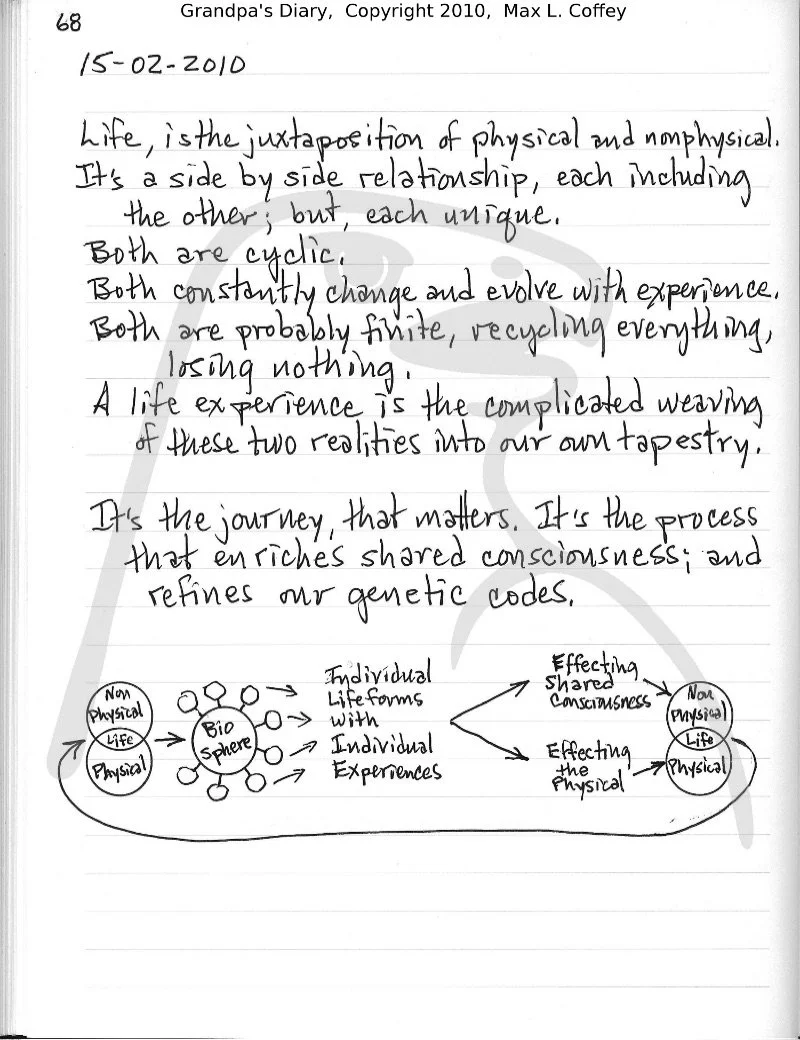 Grandpa's Diary, Copyright 2010, Max L. Coffey
68
15-02-2010
Life, is the juxtaposition of physical and nonphysical.
It's a side by side relationship, each including
the other; but, each unique.
Both are cyclic.
Both constantly change and evolve with experience.
Both are probably finite, recycling everything,
losing nothing.
A life experience is the complicated weaving
of these two realities into our own tapestry.
It's the journey, that matters. It's the process
that enriches shared consciousness; and
refines our genetic codes.
Non
Physical
Life
Physical
Bio
Sphere
Individual
Lifeforms
with
Individual
Experiences
Effecting
Shared
Consciousness
Effecting
the
Physical
Non
Physical
Life
Physical